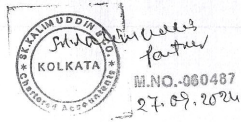 SK. KALIMUDDIN & CO.
KOLKATA
Chartered Accountants
partner
M.NO.-060487
27.09.2024